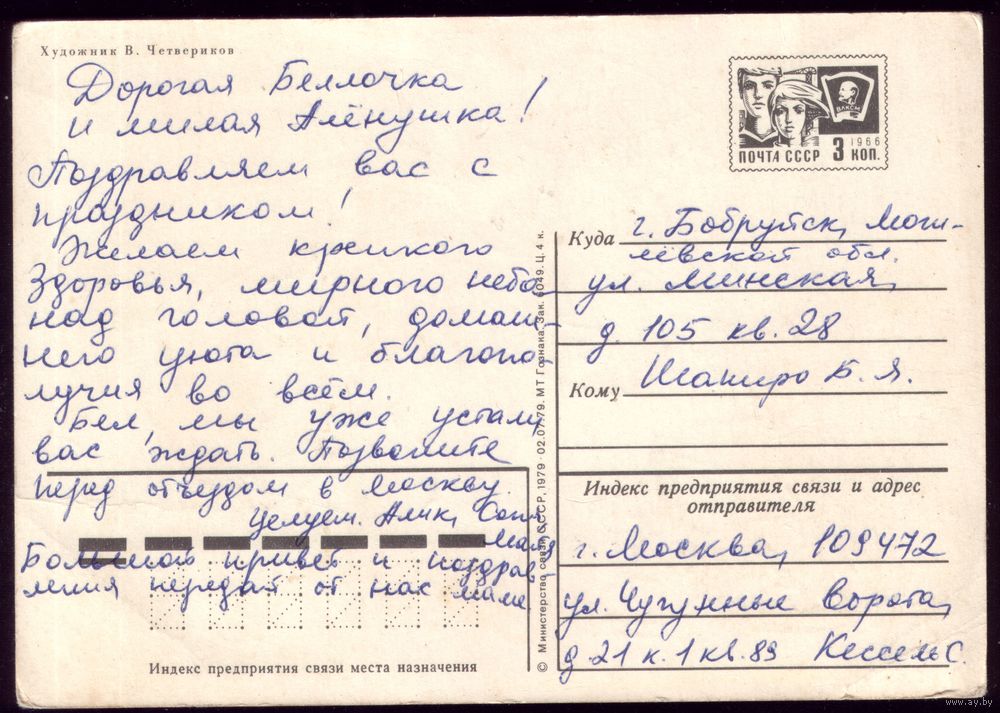 Художник В. Четвериков
Дорогая Беллочка
и милая Алёнушка!
Поздравляем вас с
праздником!
Желаем крепкого
здоровья, мирного неба
над головой, домаш-
него уюта и благопо-
лучия во всём.
Бел, мы уже устали
вас ждать. Позвоните
перед отъездом в Москву.
Целуем. Алик, Соня,
Маня
Большой привет и поздрав-
ления передай от нас маме
Индекс предприятия связи места назначения
© Министерство связи СССР, 1979 02.07.79. МТ Гознака. Зак. 6049. Ц. 4 к.
ВЛКСМ
1966
ПОЧТА СССР 3 КОП.
Куда г. Бобруйск, Моги-
лёвской обл.
ул. Минская,
д. 105 кв. 28
Кому Шапиро Б. Я.
Индекс предприятия связи и адрес
отправителя
г. Москва, 109472
ул. Чугунные ворота,
д. 21 к. 1 кв. 89 Кессель С.
www.ay.by